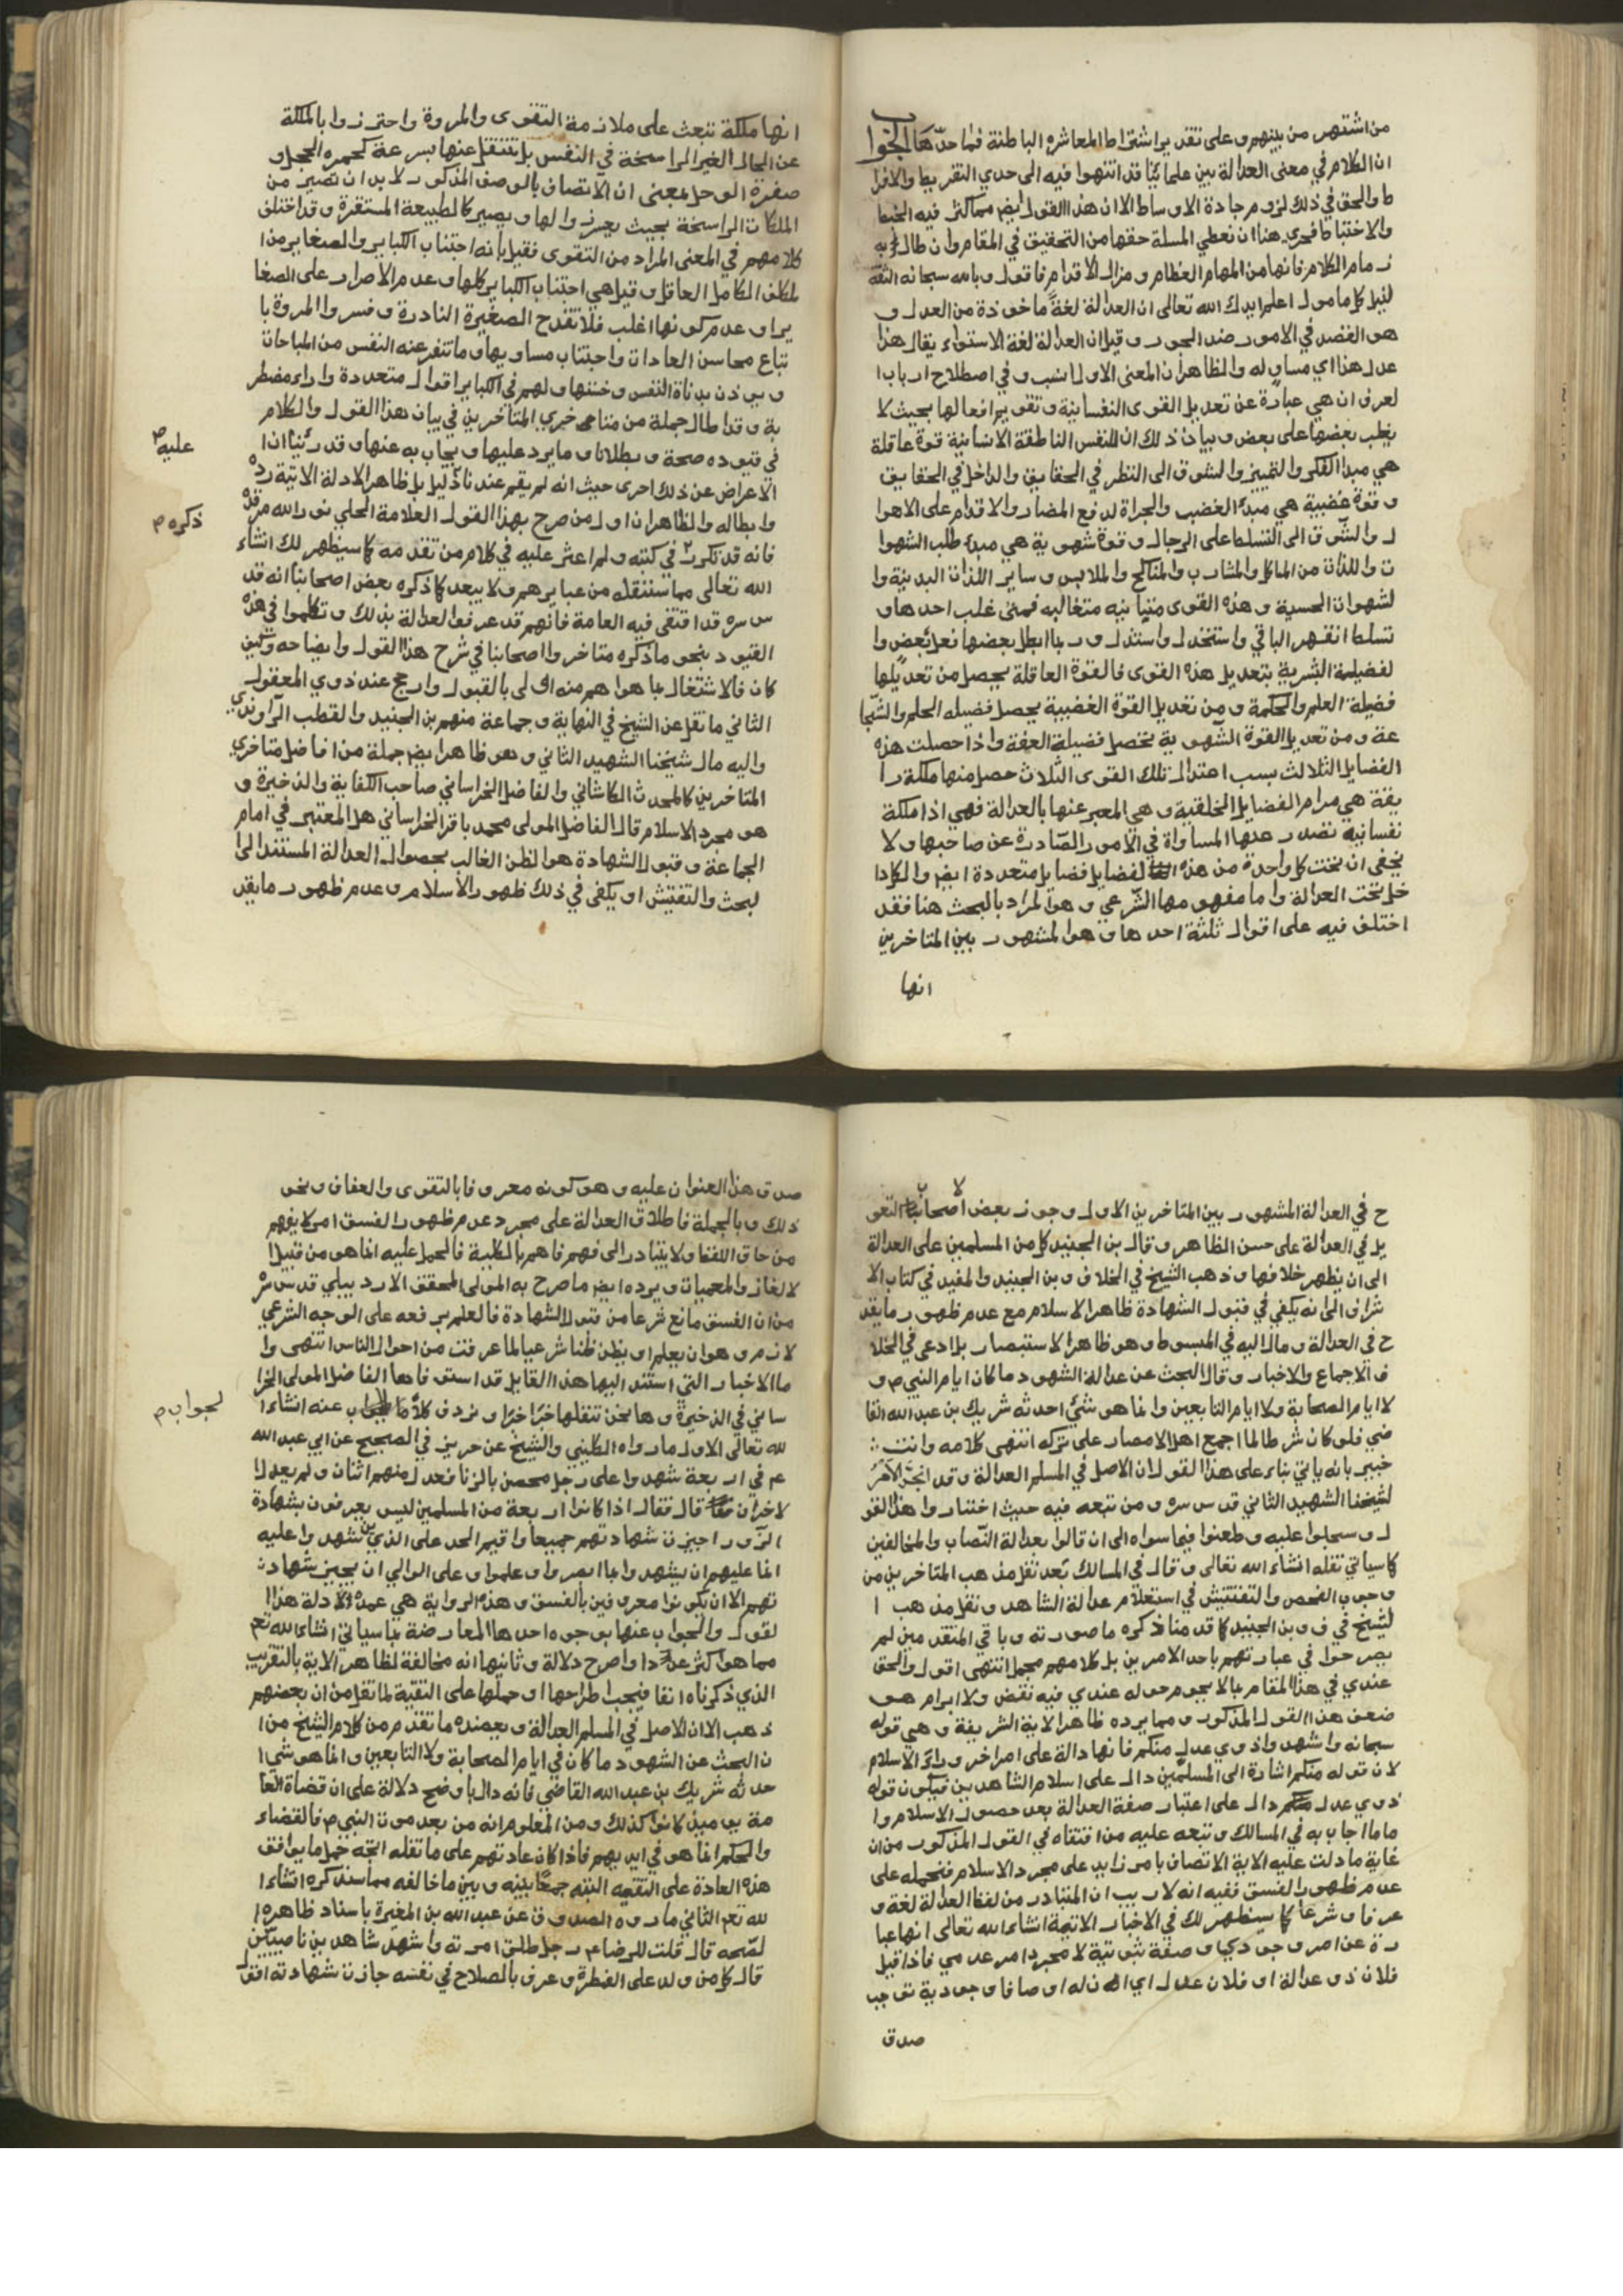 من اشتهر من بينهم وعلى تقدير اشتراط المعاشره الباطنة فما حدّها الجواب
ان الكلام في معنى العدالة بين علمائنا قد انتهوا فيه الى حدي التفريط والافرا
ط والحق في ذلك لزوم جادة الاوساط الا ان هذا القول ايضا مما كثر فيه الخبط
والاختباط فحري هنا ان نعطي المسلة حقها من التحقيق في المقام وان طال به
زمام الكلام فانها من المهام العظام ومزال الاقدام فاقول وبالله سبحانه الثقة
لنيل كل مامول اعلم ايدك الله تعالى ان العدالة لغةً ماخوذة من العدل و
هو القصد في الامور ضد الجور وقيل ان العدالة لغة الاستواء يقال هذا
عدل هذا اي مساوٍ له والظاهر ان المعنى الاول انسب وفي اصطلاح ارباب ا
لعرفان هي عبارة عن تعديل القوى النفسانية وتقويم افعالها بحيث لا
يغلب بعضها على بعض وبيان ذلك ان للنفس الناطقة الانسانية قوة عاقلة
هي مبدا الفكر والتمييز والشوق الى النظر في الحقايق والداخل في الحقايق
وقوة غضبية هي مبدئ الغضب والجراة لدفع المضار والاقدام على الاهوا
ل والشوق الى التسلط على الرجال وقوة شهوية هي مبدء طلب الشهوا
ت واللذات من الماكل والمشارب والمناكح والملابس وساير اللذات البدنية وا
لشهوات الحسية وهذه القوى متباينه متغالبه فمتى غلب احدها و
تسلط انقهر الباقي واستخذل واستذل وربما ابطل بعضها فعل بعض وا
لفضيلة البشرية بتعديل هذه القوى فالقوة العاقلة يحصل من تعديلها
فضيلة العلم والحكمة ومن تعديل القوة الغضبية يحصل فضيله الحلم والشجا
عة ومن تعديل القوة الشهوية تحصل فضيلة العفة واذا حصلت هذه
الفضايل الثلاث بسبب اعتدال تلك القوى الثلاث حصل منها ملكة را
بقة هي مرام الفضايل الخلقية وهي المعبر عنها بالعدالة فهي اذا ملكة
نفسانيه تصدر عنها المساواة في الامور الصادرة عن صاحبها ولا
يخفى ان تحت كل واحدة من هذه الفضايل فضايل متعددة ايضا والكل دا
خل تحت العدالة واما مفهومها الشرعي وهو المراد بالبحث هنا فقد
اختلف فيه على اقوال ثلثة احدها وهو المشهور بين المتاخرين
انها
انها ملكة تبعث على ملازمة التقوى والمروة واحترزوا بالملكة
عن الحال الغير الراسخة في النفس بل تنتقل عنها بسرعة كحمرة الخجل و
صفرة الوجل بمعنى ان الاتصاف بالوصف المذكور لا بد ان تصير من
الملكات الراسخة بحيث يعسر زوالها ويصير كالطبيعة المستقرة وقد اختلف
كلامهم في المعنى المراد من التقوى فقيل بانه اجتناب الكباير والصغاير من ا
لمكلف الكامل العاقل وقيل هي اجتناب الكباير كلها وعدم الاصرار على الصغا
ير او عدم كونها اغلب فلا تقدح الصغيرة النادرة وفسروا المروة با
تباع محاسن العادات واجتناب مساويها وما تنفر عنه النفس من المباحات
ويوذن بدناة النفس وخستها ولهم في الكباير اقوال متعددة واراء مضطر
بة وقد اطال جملة من متاخري المتاخرين في بيان هذا القول والكلام
في قيوده صحة وبطلانا وما يرد عليها ويجاب به عنها وقد رئينا ان ا
عليه ص
لاعراض عن ذلك احرى حيث انه لم يقم عندنا دليل بل ظاهر الادلة الاتية رده
وابطاله والظاهر ان اول من صرح بهذا القول العلامة الحلي نور الله مرقده
ذكره م
فانه قد تكرر في كتبه ولم اعثر عليه في كلام من تقدمه كما سيظهر لك انشاء
الله تعالى مما سننقله من عبايرهم ولا يبعد كما ذكره بعض اصحابنا انه قد
س سره قد اقتفى فيه العامة فانهم قد عرفوا العدالة بذلك وتكلموا في هذه
القيود بنحو ما ذكره متاخروا اصحابنا في شرح هذا القول وايضاحه
كان فالاشتغال بما هو اهم منه اولى بالقبول وارجح عند ذوي المعقول
الثاني ما نقل عن الشيخ في النهاية وجماعة منهم بن الجنيد والقطب الراوندي
واليه مال شيخنا الشهيد الثاني وهو ظاهر ايضا جملة من افاضل متاخري
المتاخرين كالمحدث الكاشاني والفاضل الخراساني صاحب الكفاية والذخيرة و
هو مجرد الاسلام قال الفاضل المولى محمد باقر الخراساني هل المعتبر في امام
الجماعة وقبول الشهادة هو الظن الغالب بحصول العدالة المستند الى ا
لبحث والتفتيش او يكفي في ذلك ظهور الاسلام وعدم ظهور ما يقد
ح في العدالة المشهور بين المتاخرين الاول وجوز بعض الاصحاب التعو
يل في العدالة على حسن الظاهر وقال بن الجنيد كل من المسلمين على العدالة
الى ان يظهر خلافها وذهب الشيخ في الخلاف وبن الجنيد والمفيد في كتاب الا
شراف الى انه يكفي في قبول الشهادة ظاهر الاسلام مع عدم ظهور ما يقد
ح في العدالة ومال اليه في المبسوط وهو ظاهر الاستبصار بل ادعى في الخلا
ف الاجماع والاخبار وقال البحث عن عدالة الشهود ما كان ايام النبي ص و
لا ايام الصحابة ولا ايام التابعين وانما هو شئ احدثه شريك بن عبد الله القا
ضي فلو كان شرطا لما اجمع اهل الامصار على تركه انتهى كلامه وانت
خبير بانه ياتي بناء على هذا القول ان الاصل في المسلم العدالة وقد انجر الامر
لشيخنا الشهيد الثاني قدس سره ومن تبعه فيه حيث اختار واهذا القو
ل وسجلوا عليه وطعنوا فيما سواه الى ان قالوا بعدالة النصاب والمخالفين
كما سياتي نقله انشاء الله تعالى وقال في المسالك بعد نقل مذهب المتاخرين من
وجوب الفحص والتفتيش في استعلام عدالة الشاهد ونقل مذهب ا
لشيخ في ف وبن الجنيد كما قدمنا ذكره ما صورته وباقي المتقدمين لم
يصرحوا في عبارتهم باحد الامرين بل كلامهم مجمل انتهى اقول والحق
عندي في هذا المقام بما لا يحوم حوله عندي فيه نقض ولا ابرام هو
ضعف هذا القول المذكور ومما يرده ظاهر الاية الشريفة وهي قوله
سبحانه واشهدوا ذوي عدل منكم فانها دالة على امر اخر وراء الاسلام
لان قوله منكم اشارة الى المسلمين دال على اسلام الشاهدين فيكون قوله
ذوي عدل منكم دال على اعتبار صفة العدالة بعد حصول الاسلام وا
ما ما اجاب به في المسالك وتبعه عليه من اقتفاه في القول المذكور من ان
غاية ما دلت عليه الاية الاتصاف بامر زايد على مجرد الاسلام فنحمله على
عدم ظهور الفسق ففيه انه لا ريب ان المتبادر من لفظ العدالة لغة و
عرفا وشرعا كما سيظهر لك في الاخبار الاتية انشاء الله تعالى انها عبا
رة عن امر وجودي وصفة ثبوتية لا مجرد امر عدمي فاذا قيل
فلان ذو عدالة او فلان عدل اي ان له اوصافا وجودية توجب
صدق
صدق هذا العنوان عليه وهو كونه معروفا بالتقوى والعفاف ونحو
ذلك وبالجملة فاطلاق العدالة على مجرد عدم ظهور الفسق امر لا يفهم
من حاق اللفظ ولا يتبادر الى فهم فاهم بالكلية فالحمل عليه انما هو من قبيل ا
لالغاز والمعميات ويرده ايضا ما صرح به المولى المحقق الاردبيلي قدس سره
من ان الفسق مانع شرعا من قبول الشهادة فالعلم برفعه على الوجه الشرعي
لازم وهو ان يعلم او يظن ظنا شرعيا لما عرفت من احوال الناس انتهى وا
ما الاخبار التي استند اليها هذا القايل قد استوفاها الفاضل المولى الخرا
ساني في الذخيرة وها نحن ننقلها خبرا خبرا ونردف كلا بالجواب عنه انشاء ا
لجواب م
لله تعالى الاول ما رواه الكليني والشيخ عن حريز في الصحيح عن ابي عبد الله
ع في اربعة شهدوا على رجل محصن بالزنا فعدل منهم اثنان ولم يعدل ا
لاخران قال فقال اذا كانوا اربعة من المسلمين ليس يعرفون بشهادة
الزور اجيزت شهادتهم جميعا واقيم الحد على الذي شهدوا عليه
انما عليهم ان يشهدوا بما ابصروا وعلموا وعلى الوالي ان يجيز شهاد
تهم الا ان يكونوا معروفين بالفسق وهذه الرواية هي عمدة ادلة هذا ا
لقول والجواب عنها بوجوه احدها المعارضة بما سياتي انشاء الله تعم
مما هو اكثر عددا واصرح دلالة وثانيها انه مخالفة لظاهر الاية بالتقريب
الذي ذكرناه انفا فيجب اطراحها او حملها على التقية لما نقل من ان بعضهم
ذهب الان الاصل في المسلم العدالة ويعضده ما تقدم من كلام الشيخ من ا
ن البحث عن الشهود ما كان في ايام الصحابة ولا التابعين وانما هو شئ ا
حدثه شريك بن عبد الله القاضي فانه دال باوضح دلالة على ان قضاة العا
مة يوميذ كانوا كذلك ومن المعلوم انه من بعد موت النبي ص فالقضاء
والحكم انما هو في ايديهم فاذا كان عادتهم على ما نقله اتجه حمل ما يوافق
هذه العادة على التقيه البته جمعا بينه وبين ما خالفه مما سنذكره انشاء ا
لله تعم الثاني ما رواه الصدوق عن عبد الله بن المغيرة باسناد ظاهره ا
لصحه قال قلت للرضا ع رجل طلق امرته واشهد شاهدين ناصبيين
قال كل من ولد على الفطرة وعرف بالصلاح في نفسه جازت شهادته اقول